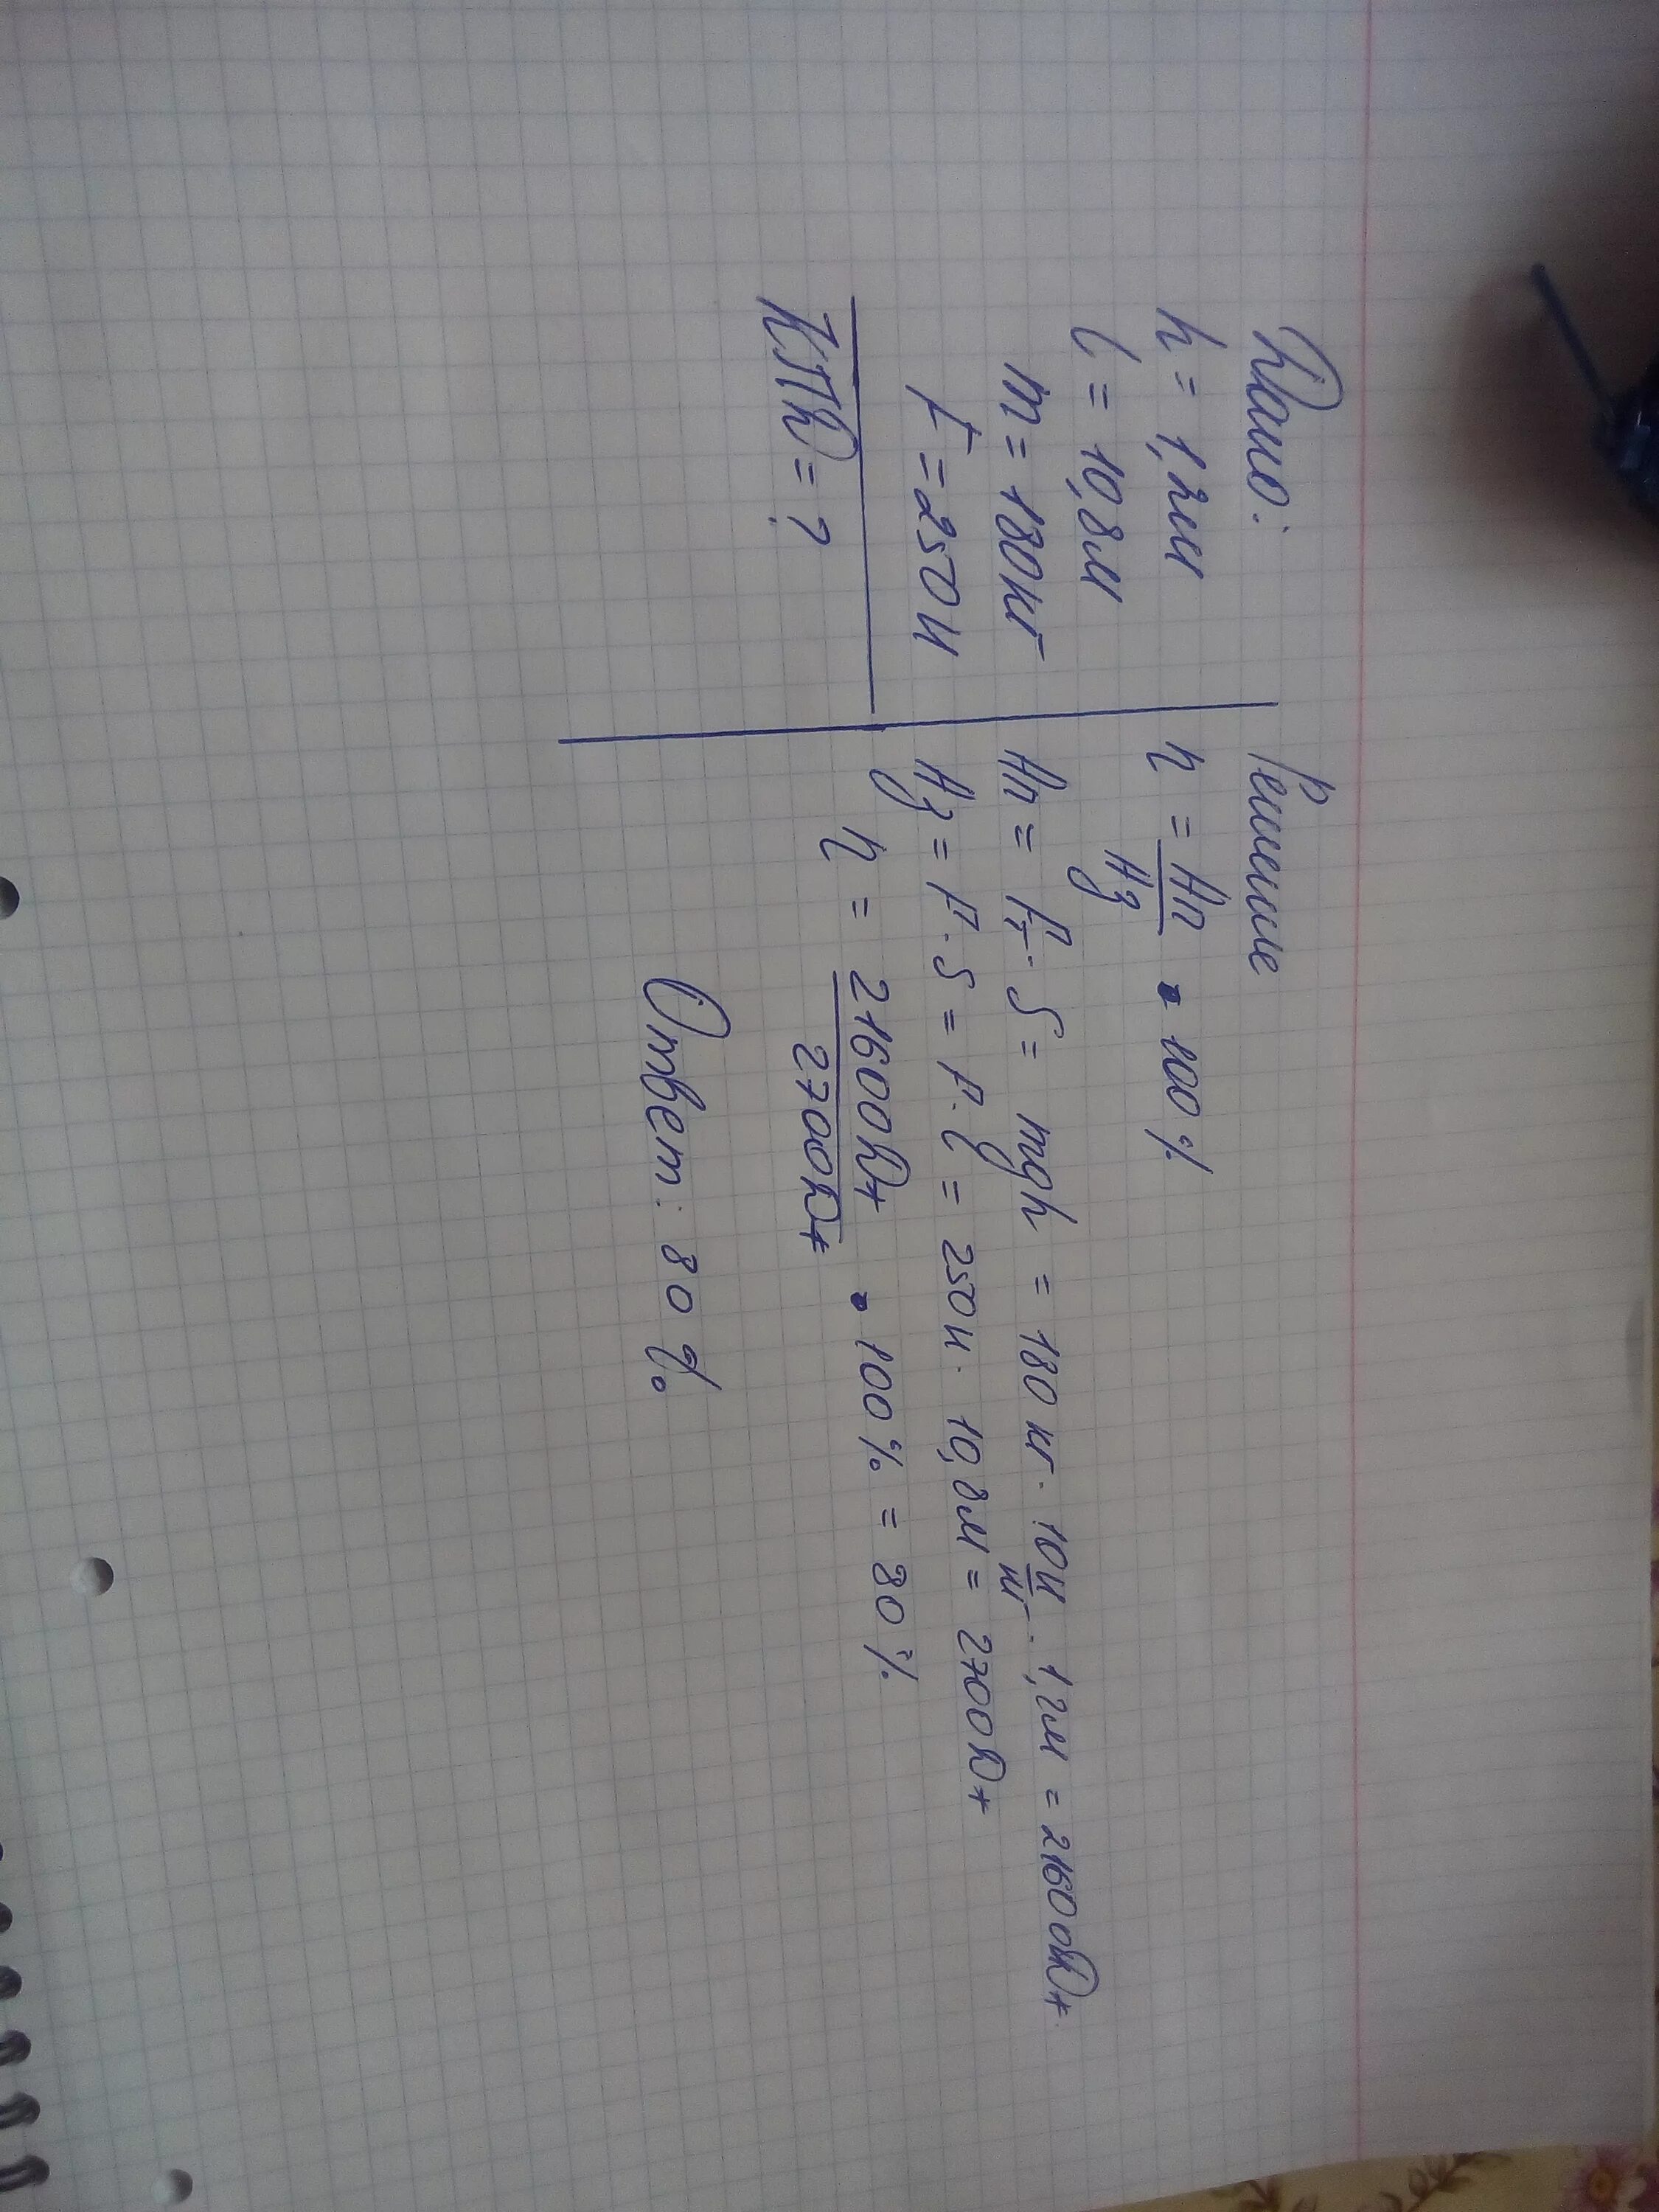 Дано:
h = 1,2м
l = 10,8м
m = 180кг
F = 250н
КПД = ?
Решение
η = Aп/Aз • 100%
Aп = Fт · S = mgh = 180 кг · 10 н/кг · 1,2м = 2160Дж
Aз = F · S = F · l = 250н · 10,8м = 2700Дж
η = 2160Дж/2700Дж • 100% = 80%
Ответ: 80%